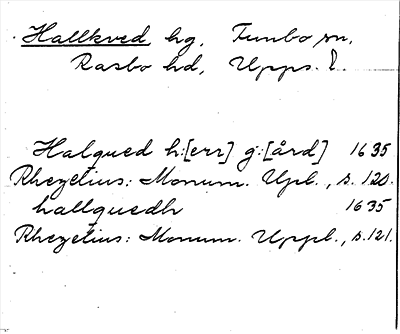 Hallkved hg, Funbo sn,
Rasbo hd, Upps. l.
Halqued h:[err] g:[ård] 1635
Rhezelius: Monum. Upl., s. 120.
hallquedh 1635
Rhezelius: Monum. Uppl., s. 121.